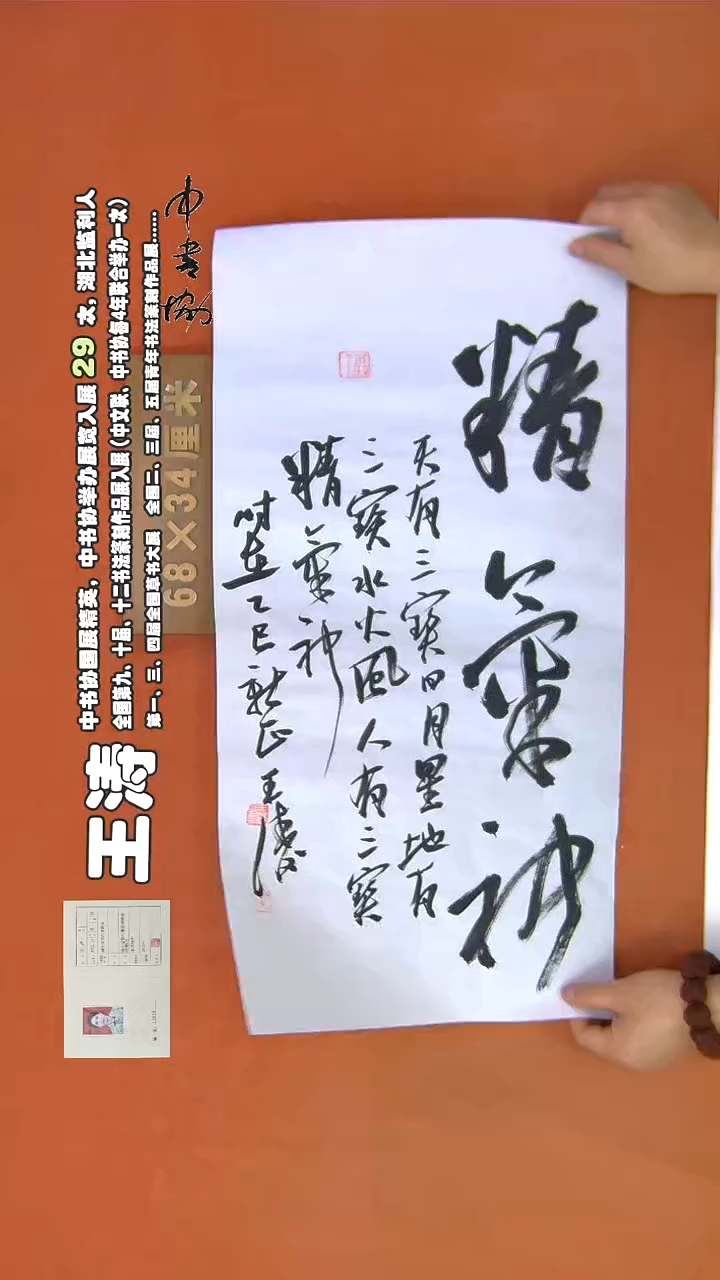 精氣神
天有三寳日月星地有
三寳水火風人有三寳
精氣神
时在乙巳新正王涛
中书协
68×34厘米
王涛
中书协国展精英，中书协举办展赛入展29次，湖北监利人
全国第九、十届、十二书法篆刻作品展入展（中文联、中书协每4年联合举办一次）
第一、三、四届全国草书大展 全国二、三届、五届青年书法篆刻作品展......